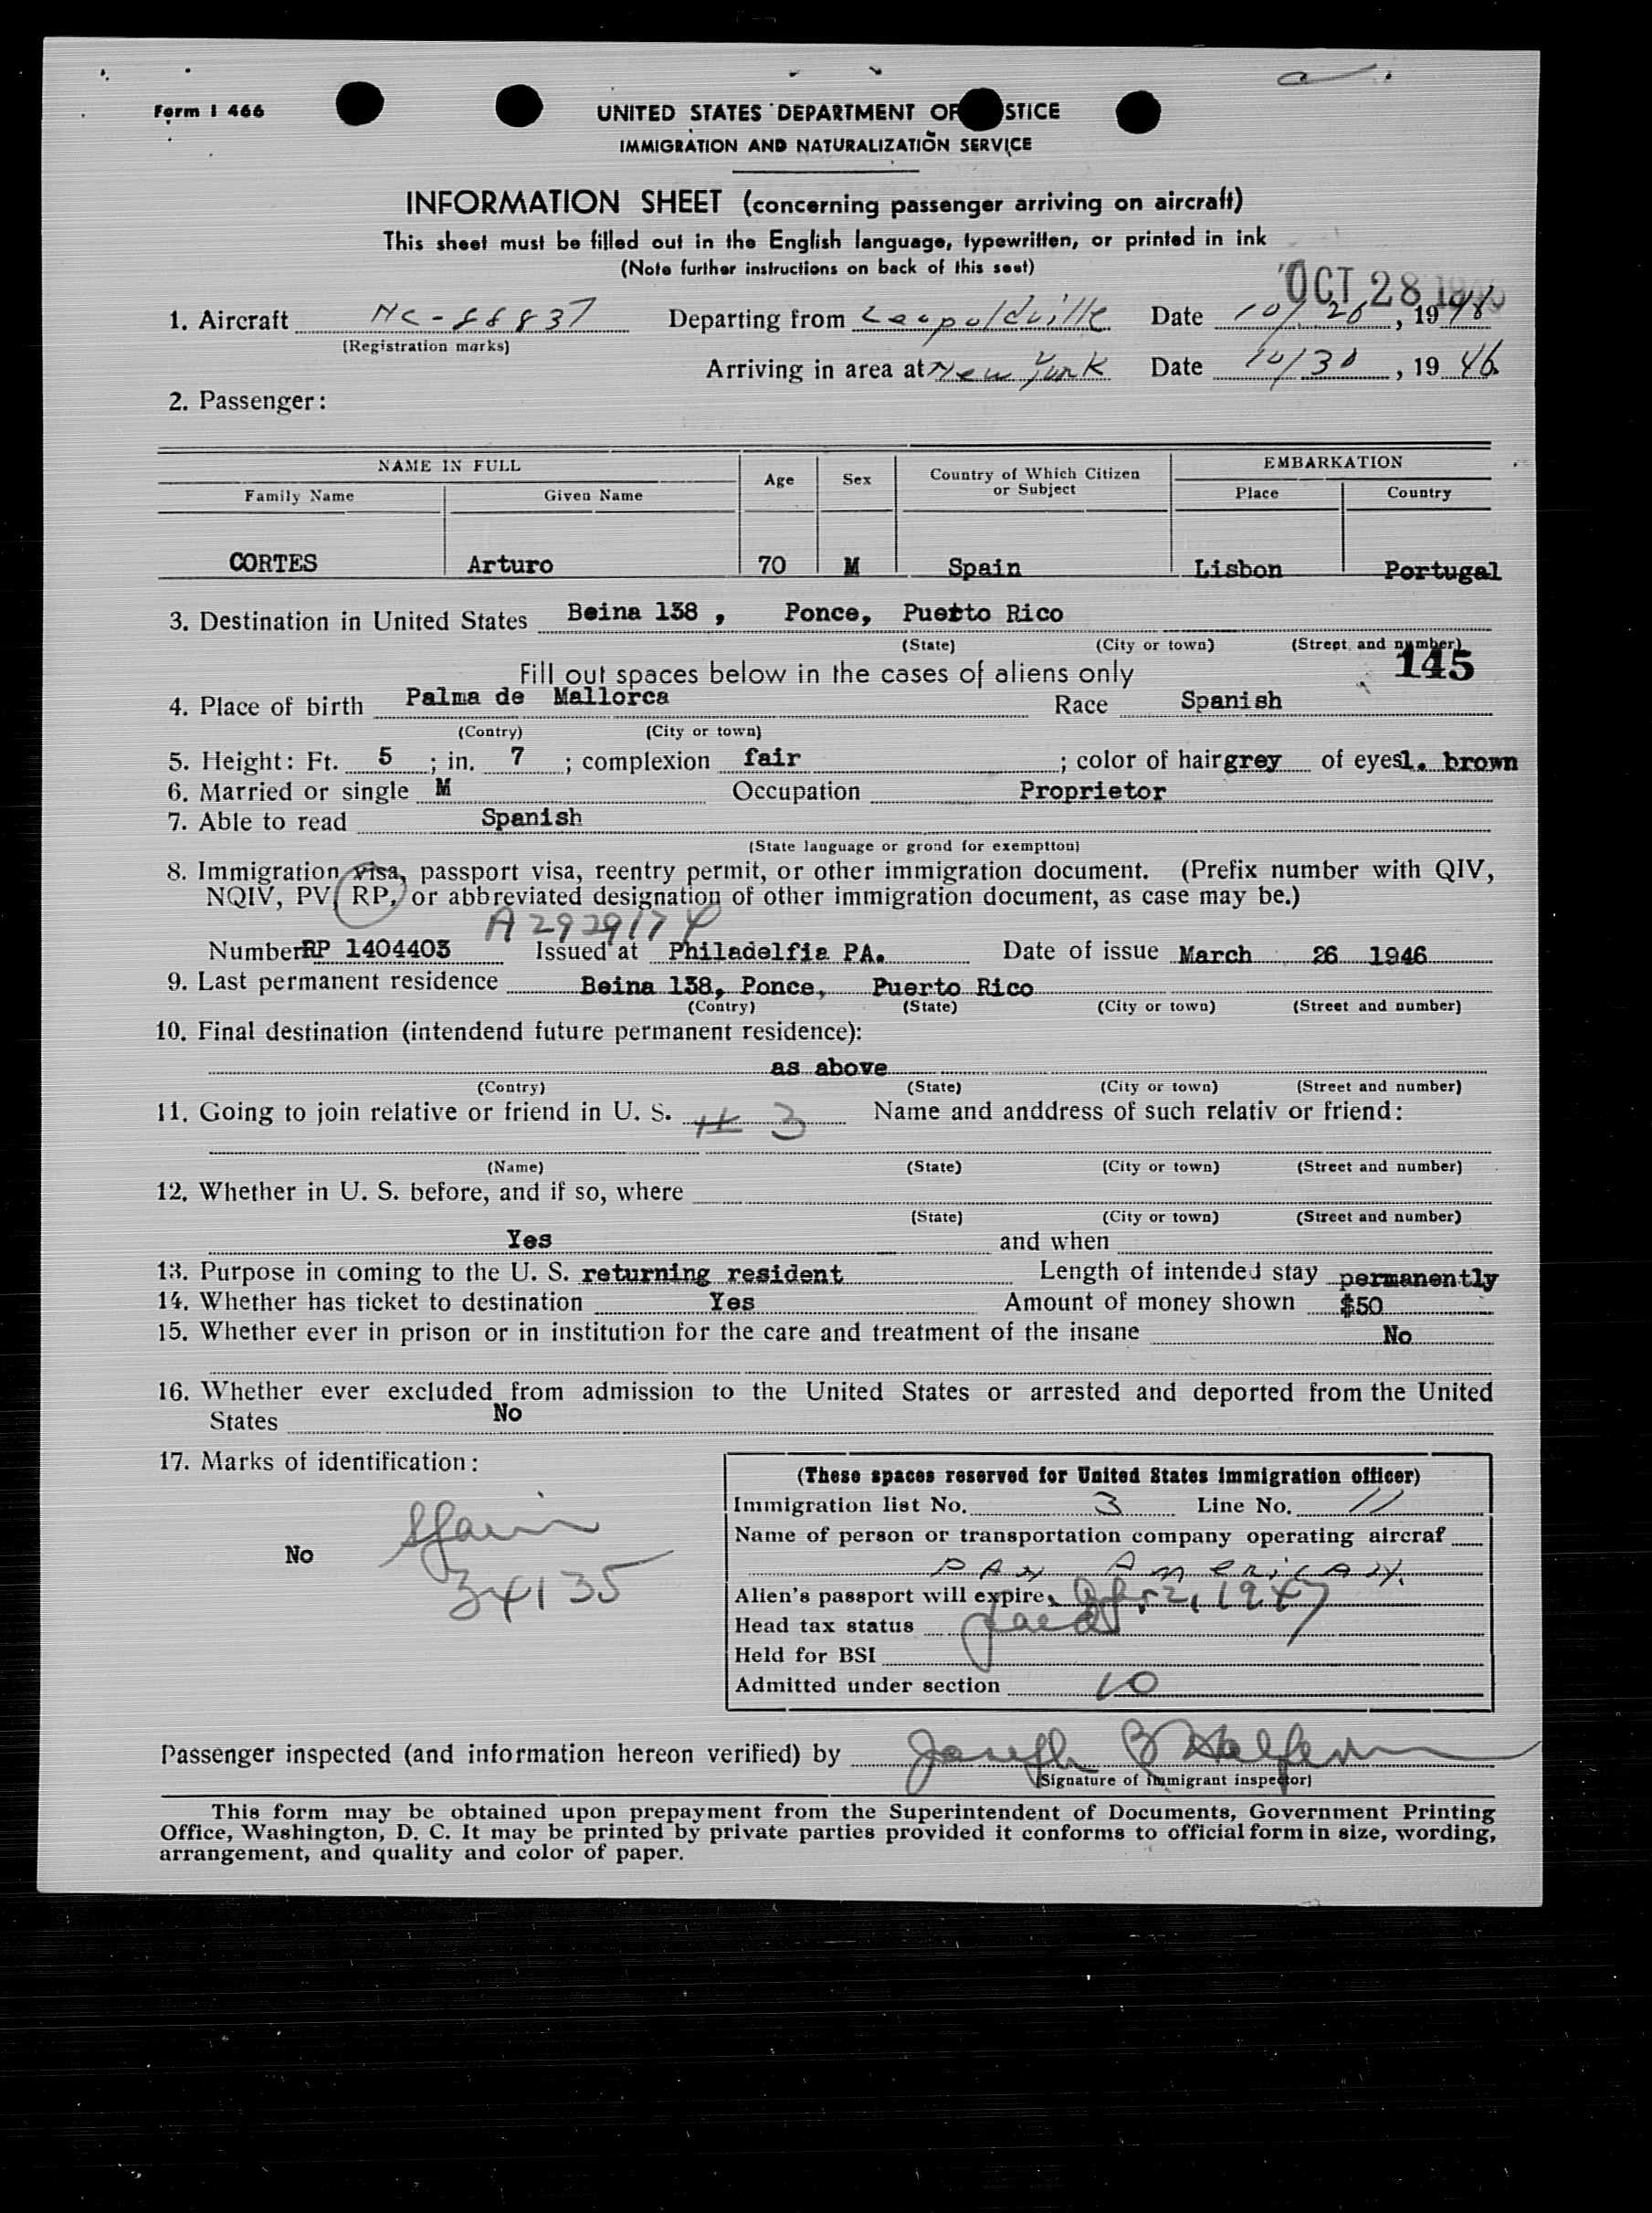 Form I 466
UNITED STATES DEPARTMENT OF STICE
IMMIGRATION AND NATURALIZATION SERVICE
INFORMATION SHEET (concerning passenger arriving on aircraft)
This sheet must be filled out in the English language, typewritten, or printed in ink
(Note further instructions on back of this seet)
OCT 28
1. Aircraft NC-88837 Departing from Leopoldville Date 10/26, 19
(Registration marks)
Arriving in area at New York Date 10/30, 19 46
2. Passenger:
NAME IN FULL Age Sex Country of Which Citizen or Subject EMBARKATION
Family Name Given Name Place Country
CORTES Arturo 70 M Spain Lisbon Portugal
3. Destination in United States Beina 138 , Ponce, Puerto Rico
(State) (City or town) (Street and number)
145
Fill out spaces below in the cases of aliens only
4. Place of birth Palma de Mallorca Race Spanish
(Contry) (City or town)
5. Height: Ft. 5 ; in. 7 ; complexion fair ; color of hair grey of eyes l. brown
6. Married or single M Occupation Proprietor
7. Able to read Spanish
(State language or grond for exemptton)
8. Immigration visa, passport visa, reentry permit, or other immigration document. (Prefix number with QIV,
NQIV, PV, RP, or abbreviated designation of other immigration document, as case may be.)
A 2929174
Number RP 1404403 Issued at Philadelfia PA. Date of issue March 26 1946
9. Last permanent residence Beina 138, Ponce, Puerto Rico
(Contry) (State) (City or town) (Street and number)
10. Final destination (intendend future permanent residence):
as above
(Contry) (State) (City or town) (Street and number)
11. Going to join relative or friend in U. S. # 3 Name and anddress of such relativ or friend:
(Name) (State) (City or town) (Street and number)
12. Whether in U. S. before, and if so, where
(State) (City or town) (Street and number)
Yes and when
13. Purpose in coming to the U. S. returning resident Length of intended stay permanently
14. Whether has ticket to destination Yes Amount of money shown $50
15. Whether ever in prison or in institution for the care and treatment of the insane No
16. Whether ever excluded from admission to the United States or arrested and deported from the United
States No
17. Marks of identification:
No
Spain
34135
(These spaces reserved for United States immigration officer)
Immigration list No. 3 Line No. 11
Name of person or transportation company operating aircraf
PAN AMERICAN.
Alien's passport will expire, 2, 1947
Head tax status paid
Held for BSI
Admitted under section 10
Passenger inspected (and information hereon verified) by Joseph B Halfern
(Signature of immigrant inspector)
This form may be obtained upon prepayment from the Superintendent of Documents, Government Printing
Office, Washington, D. C. It may be printed by private parties provided it conforms to official form in size, wording,
arrangement, and quality and color of paper.